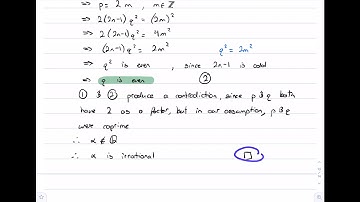 ⇒ p = 2m , m ∈ ℤ
⇒ 2(2n-1)q² = (2m)²
⇒ 2(2n-1)q² = 4m²
⇒ (2n-1)q² = 2m² q² = 2m²
⇒ q² is even , since 2n-1 is odd
⇒ q is even ②
① & ② produce a contradiction, since p & q both
have 2 as a factor, but in our assumption, p & q
were coprime
∴ α ∉ ℚ
∴ α is irrational □